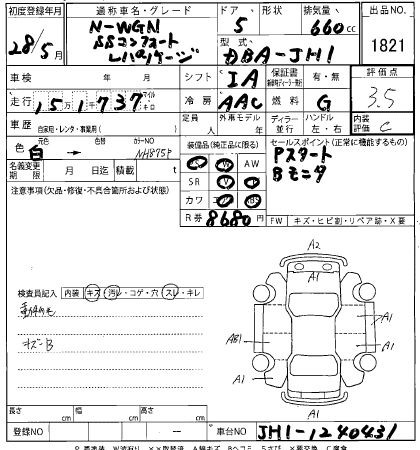 初度登録年月 通称車名・グレード ドア・形状 排気量 出品NO
28/5月 N-WGN 5 660cc 1821
SSコンフォート
Lパッケージ 型式 DBA-JH1 評価点
車検 年 月 シフト IA 保証書 有・無 3.5
走行 15万1千737 マイル キロ 冷房 AAC 燃料 G
車歴 自家用・レンタ・事業用( ) 定員 人 外車モデル 年 ディーラー 並行 ハンドル 左・右 内装評価 C
色 元色 白 → 色替 カラーNO NH875P 装備品(純正品に限る) セールスポイント(正常に機能するもの)
AW Pスタート
名義変更期限 月 日迄 積載 t SR Bモニタ
注意事項(欠品・修復・不具合箇所および状態) カワ
R券 8680円 FW キズ・ヒビ割・リペア跡・X要
検査員記入 内装 キズ・汚レ・コゲ・穴・スレ・キレ
キズB
A2
A1
A1
AB1
A1
A1
A1
A1
長さ cm 幅 cm 高さ cm
登録NO 車台NO JH1-1240431